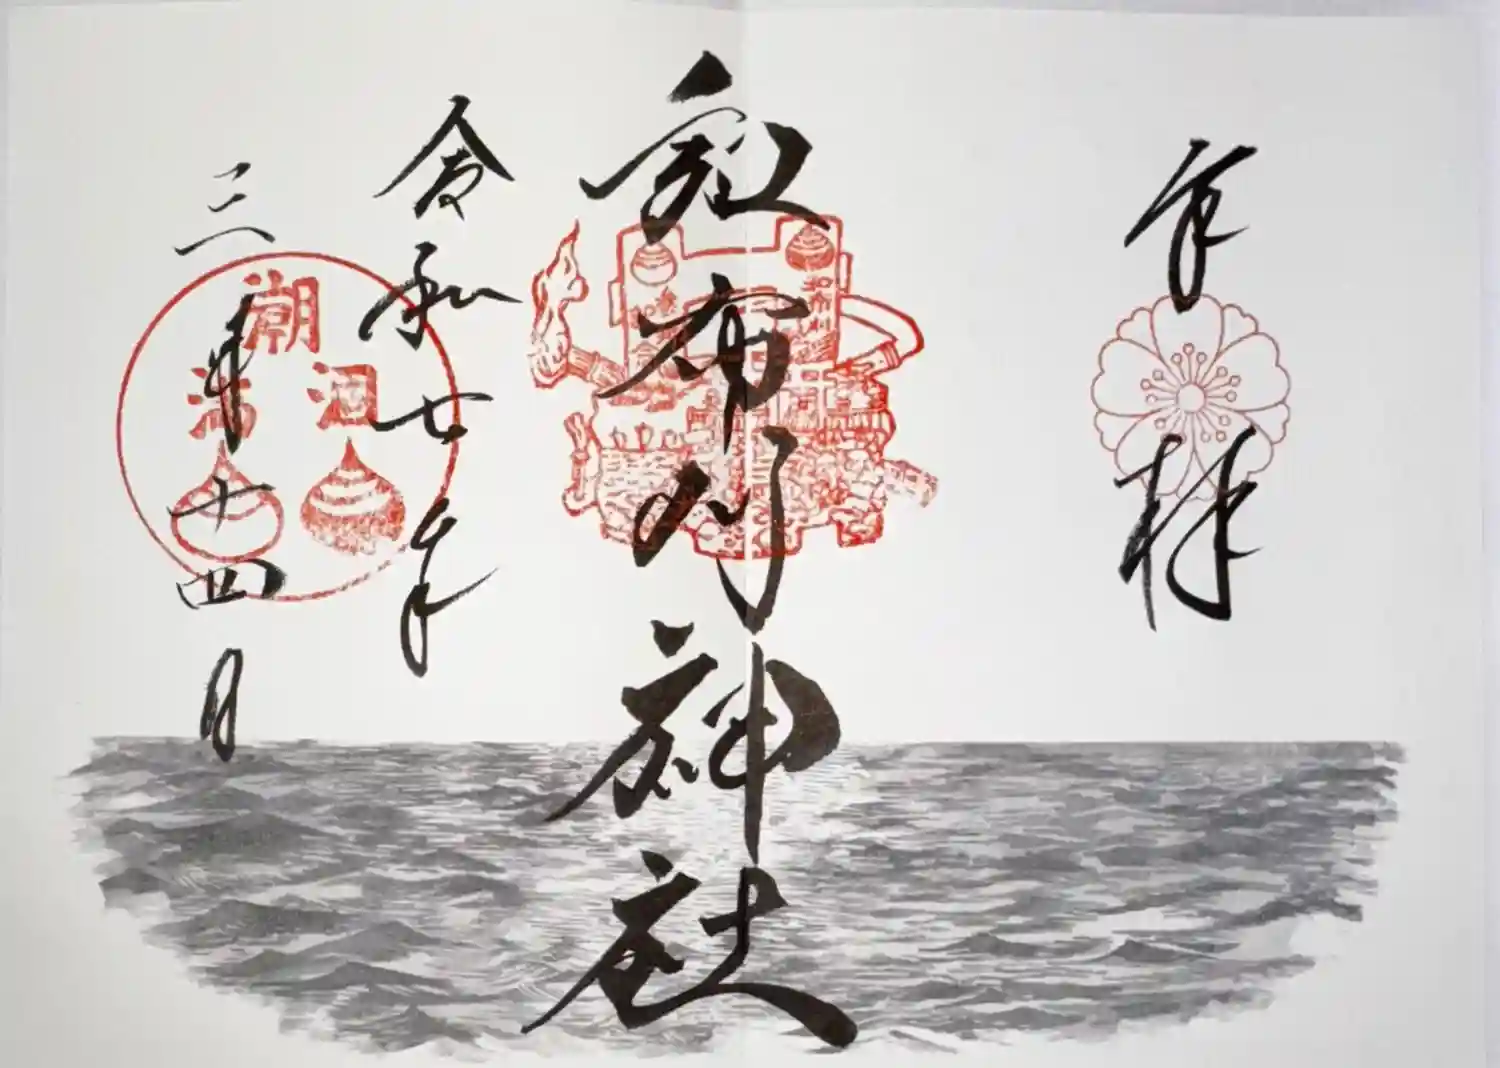 奉拝
和布刈神社
和布刈
令和七年
潮
涸
満
三月十四日